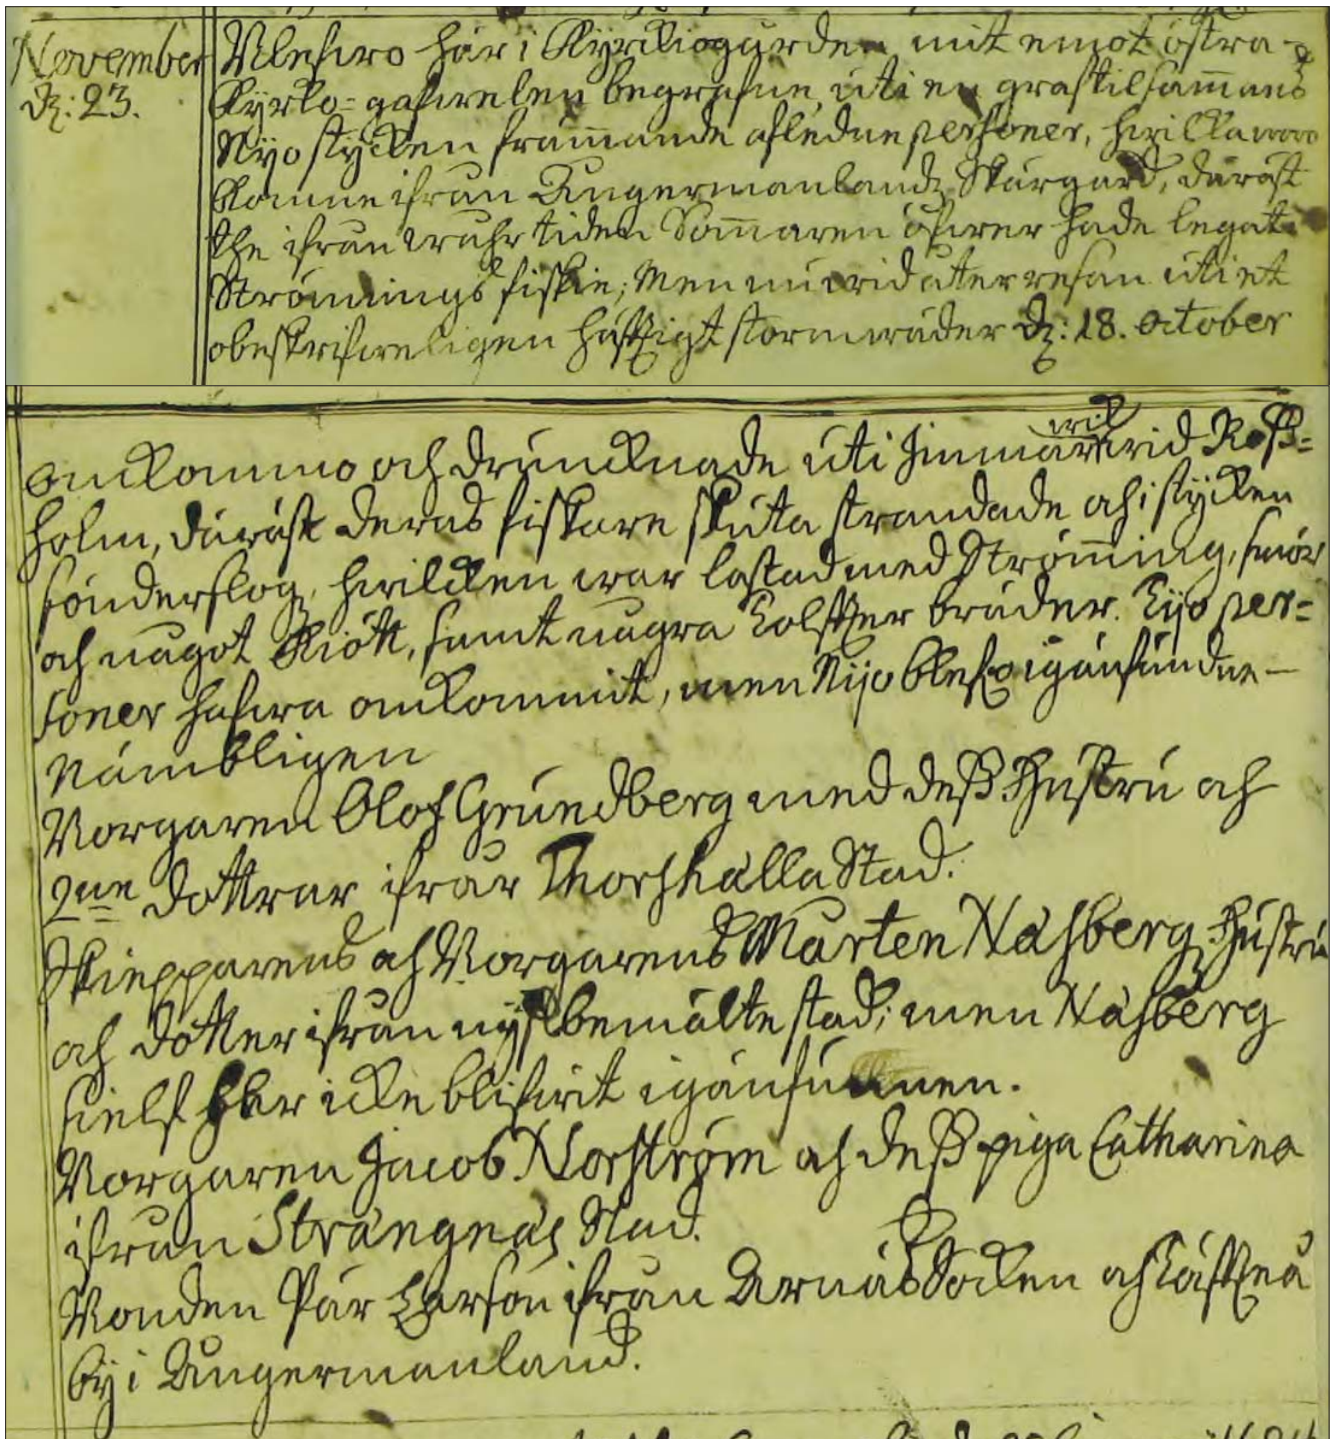 November
dz: 23.
Blefwo här i Kyrkiogården mit emot östra
Kyrko=gafwelen begrafne, uti en graf tilsam̄ans
Nijo stycken främmande afledne personer, hwilka woro
komne ifrån Ångermanlands Skärgård, däräst
the ifrån wåhr tiden Som̄aren öfwer hade legat
Strömmings fiskie; Men nu wid återresan uti et
obeskrifweligen häftigt stormwäder dz: 18. October
omkommo och drunknade uti wid Roß=
holm, däräst deras fiskare skuta strandade och i stycken
sönderslog, hwilcken war lastad med Ström̄ing, smör
och något Kiött, samt några Tolfter bräder. Tijo per=
soner hafwa omkommit, men Nijo blefwo igänfundne
Nämbligen
Borgaren Olof Grundberg med deß Hustru och
2ne Dottrar ifrån Thorshälla Stad.
Skiepparens och Borgarens Mårten Näsberg Hustru
och dotter ifrån nyßbemälte stad; men Näsberg
sielf har icke blifwit igänfunnen.
Borgaren Jacob Norström och deß piga Catharina
ifrån Strängnäs Stad.
Bonden Pär Larson ifrån Arnäs Socken och
by i Ångermanland.